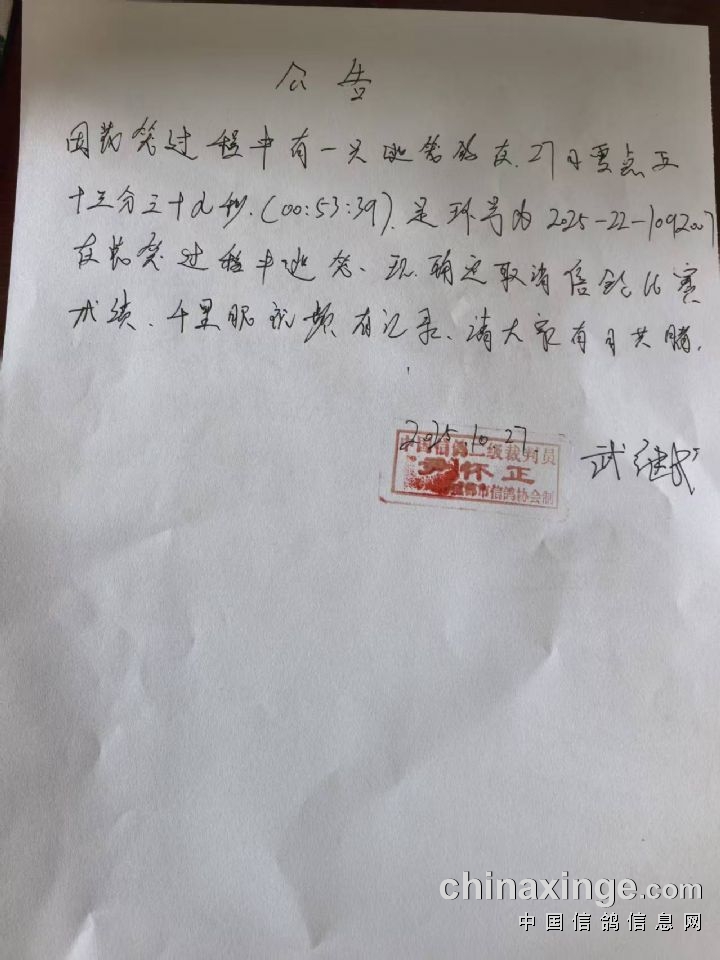 公告
因装笼过程中有一只逃笼鸽在27日零点五
十三分三十九秒.(00:53:39).足环号为2025-22-1092007
在装笼过程中逃笼、现确定取消信鸽比赛
成绩、千里眼视频有记录、请大家有目共睹.
2025.10.27
中国信鸽二级裁判员
怀正
市信鸽协会制
武继成
chinaxinge.com
中国信鸽信息网